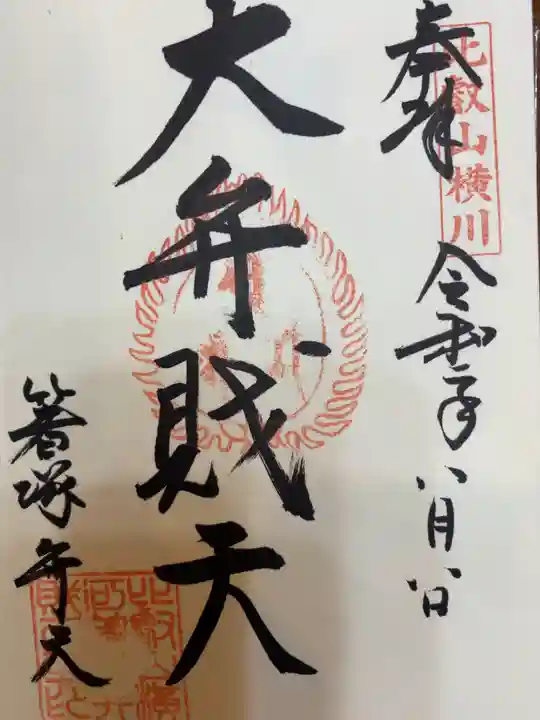 比叡山横川
奉拝
令和二年八月八日
大弁財天
箸塚弁天